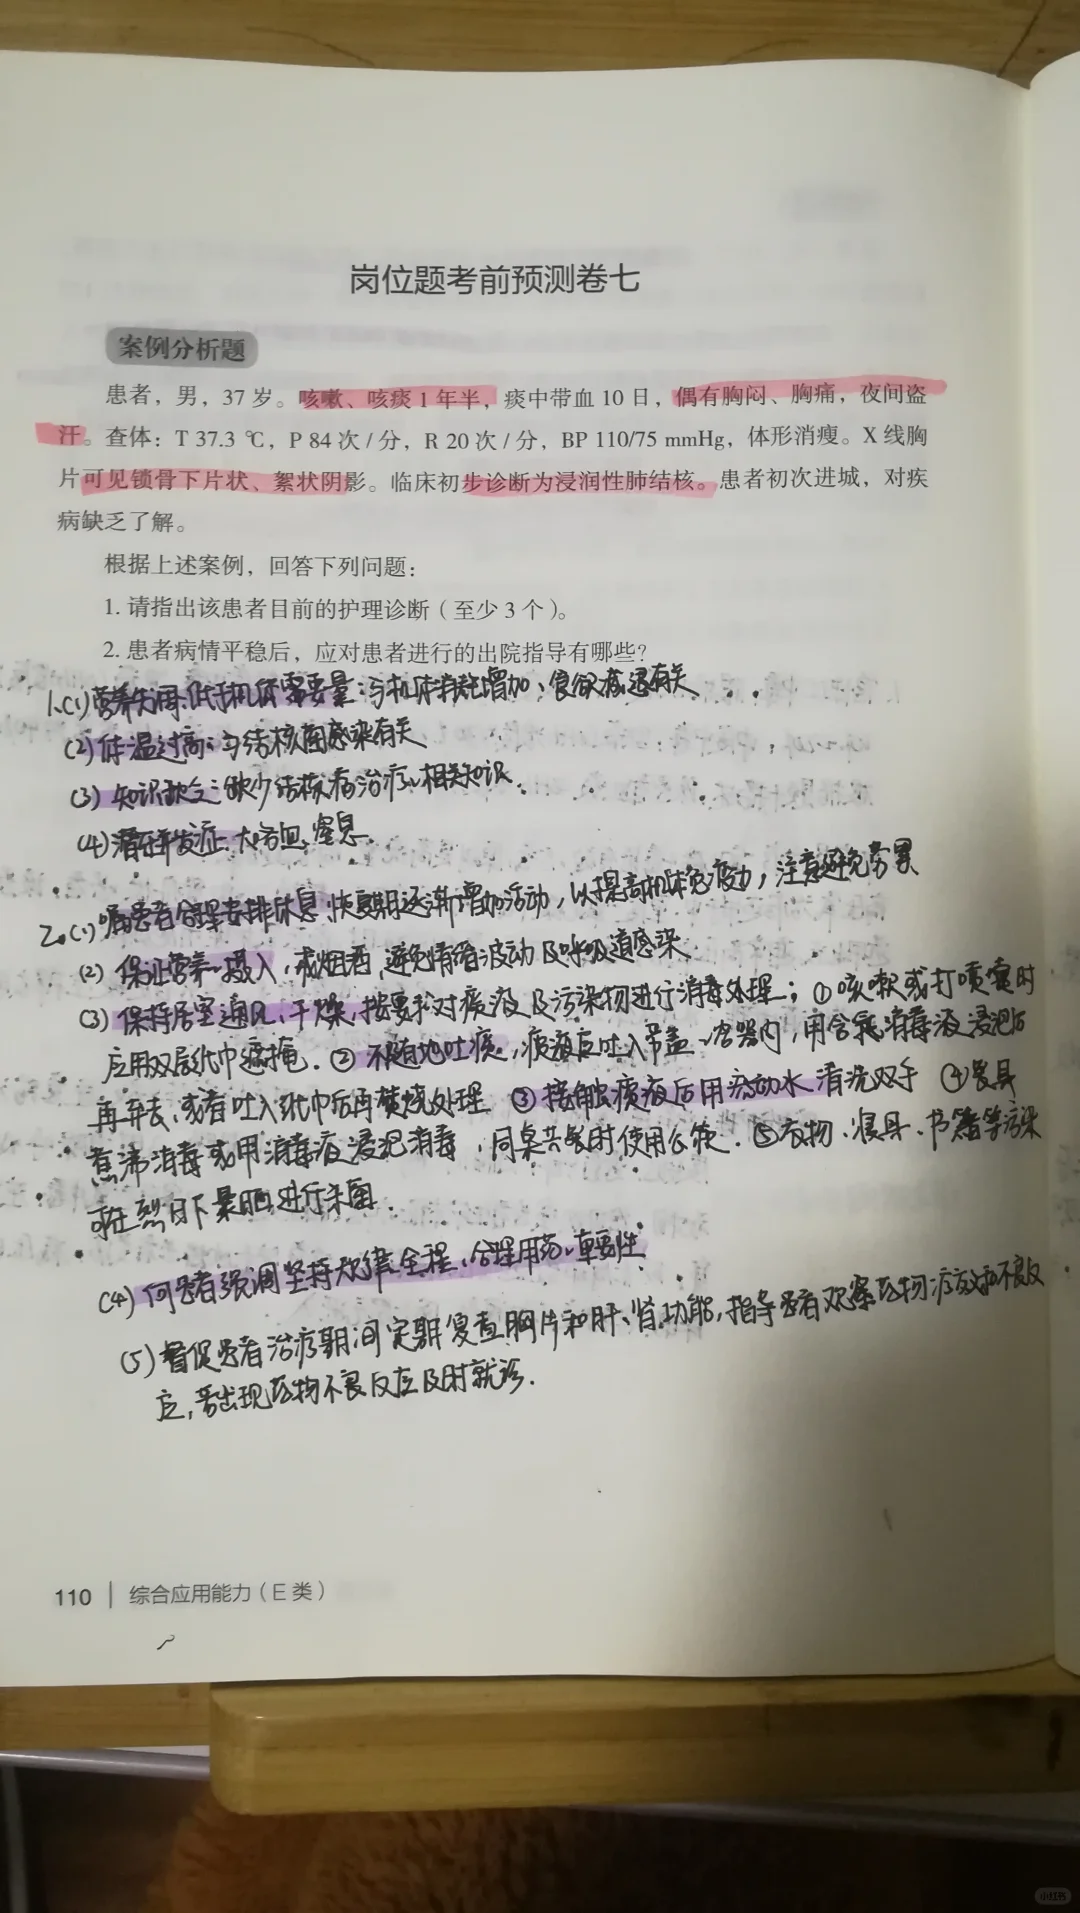 岗位题考前预测卷七
案例分析题
患者，男，37 岁。咳嗽、咳痰 1 年半，痰中带血 10 日，偶有胸闷、胸痛，夜间盗
汗。查体：T 37.3 ℃，P 84 次 / 分，R 20 次 / 分，BP 110/75 mmHg，体形消瘦。X 线胸
片可见锁骨下片状、絮状阴影。临床初步诊断为浸润性肺结核。患者初次进城，对疾
病缺乏了解。
根据上述案例，回答下列问题：
1. 请指出该患者目前的护理诊断（至少 3 个）。
2. 患者病情平稳后，应对患者进行的出院指导有哪些？
1.(1)营养失调:低于机体需要量:与机体消耗增加、食欲减退有关
(2)体温过高:与结核菌感染有关
(3)知识缺乏:缺少结核病治疗的相关知识
(4)潜在并发症:大咯血、窒息.
2.(1)嘱患者合理安排休息,恢复期逐渐增加活动,以提高机体免疫力,注意避免劳累
(2)保证营养的摄入,戒烟酒,避免情绪波动及呼吸道感染
(3)保持居室通风、干燥,按要求对痰液及污染物进行消毒处理;①咳嗽或打喷嚏时
应用双层纸巾遮掩.②不随地吐痰,痰液应吐入带盖的容器内,用含氯消毒液浸泡后
再弃去,或者吐入纸巾后再焚烧处理 ③接触痰液后用流动水清洗双手 ④餐具
煮沸消毒或用消毒液浸泡消毒,同桌共餐时使用公筷.⑤衣物、寝具、书籍等污染
可在烈日下暴晒进行杀菌.
(4)向患者强调坚持规律、全程、合理用药的重要性
(5)督促患者治疗期间定期复查胸片和肝、肾功能,指导患者观察药物疗效和不良反
应,若出现药物不良反应及时就诊.
110 | 综合应用能力（E 类）
小红书